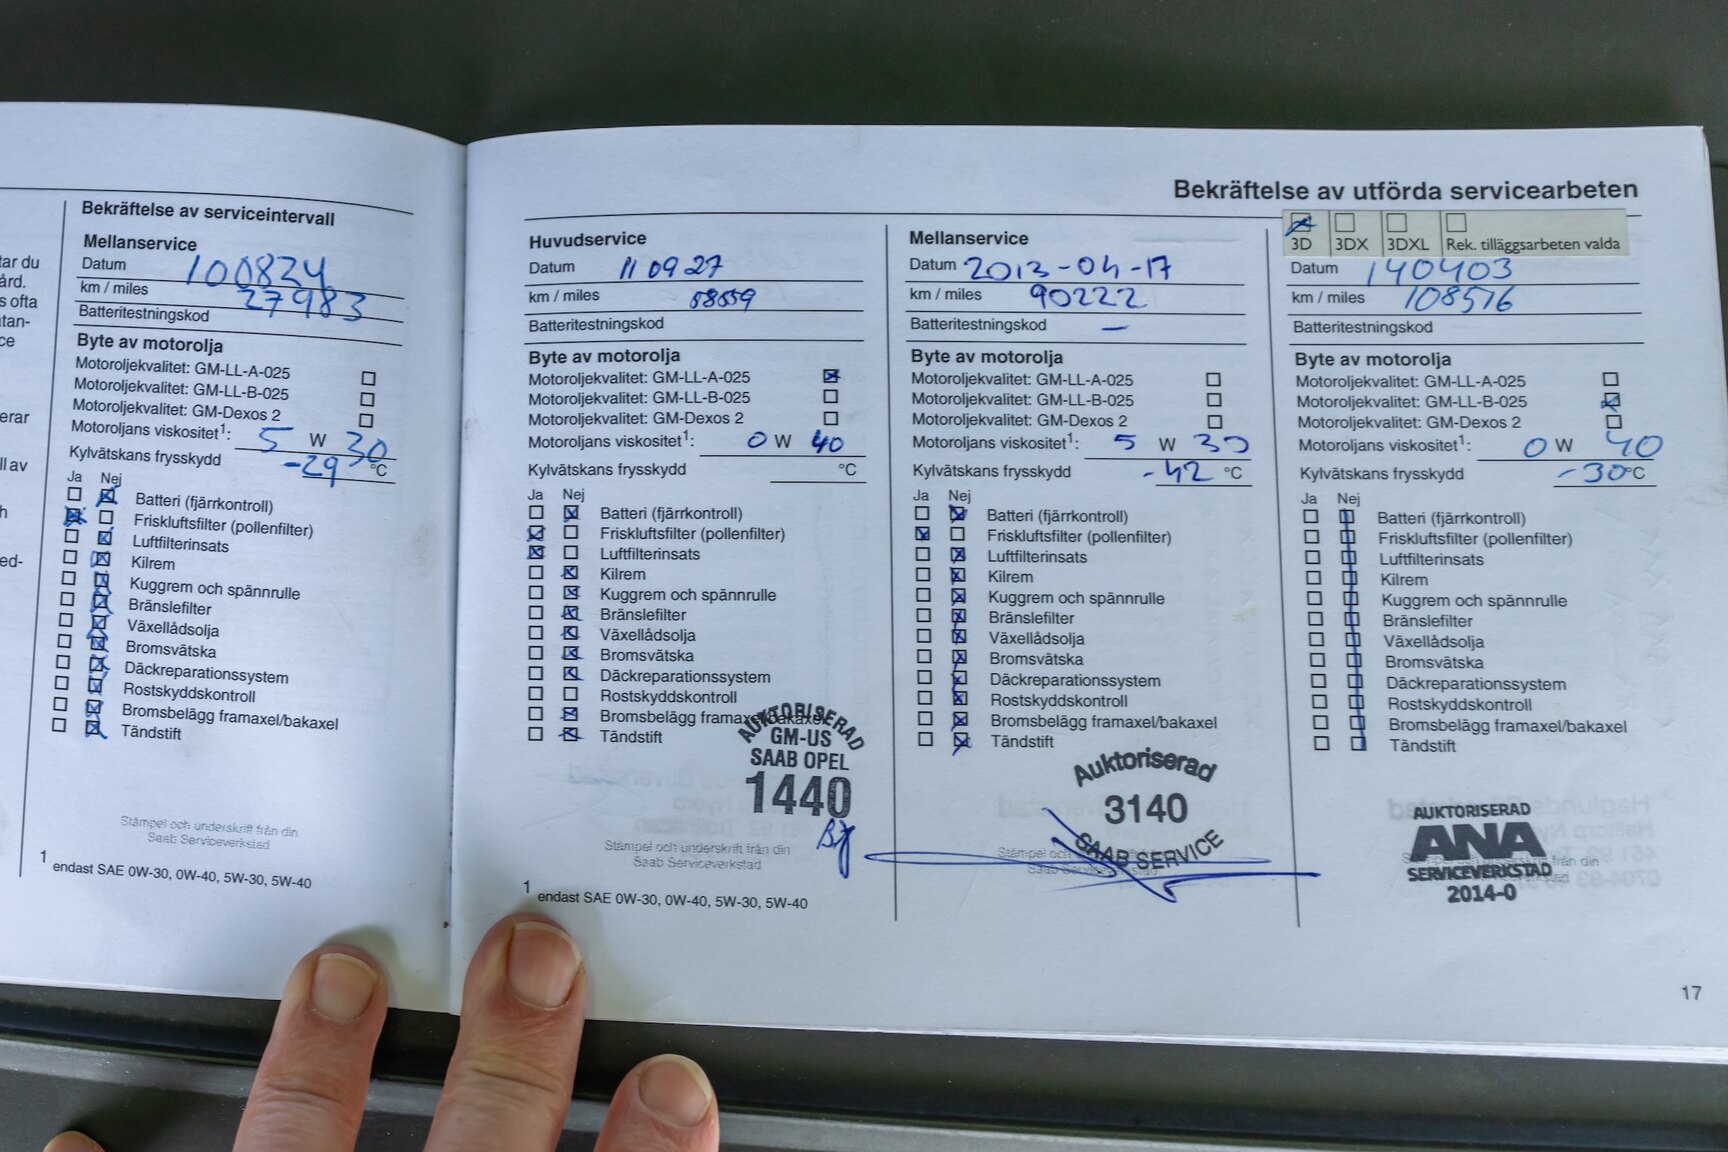 tar du
ård.
s ofta
tan-
ce
erar
ll av
h
ed-
Bekräftelse av serviceintervall
Mellanservice
Datum 100824
km / miles 27983
Batteritestningskod
Byte av motorolja
Motoroljekvalitet: GM-LL-A-025
Motoroljekvalitet: GM-LL-B-025
Motoroljekvalitet: GM-Dexos 2
Motoroljans viskositet1: 5 W 30
Kylvätskans frysskydd -29 °C
Ja Nej
Batteri (fjärrkontroll)
Friskluftsfilter (pollenfilter)
Luftfilterinsats
Kilrem
Kuggrem och spännrulle
Bränslefilter
Växellådsolja
Bromsvätska
Däckreparationssystem
Rostskyddskontroll
Bromsbelägg framaxel/bakaxel
Tändstift
Stämpel och underskrift från din
Saab Serviceverkstad
1 endast SAE 0W-30, 0W-40, 5W-30, 5W-40
Bekräftelse av utförda servicearbeten
Huvudservice
Datum 110927
km / miles 58559
Batteritestningskod
Byte av motorolja
Motoroljekvalitet: GM-LL-A-025
Motoroljekvalitet: GM-LL-B-025
Motoroljekvalitet: GM-Dexos 2
Motoroljans viskositet1: 0 W 40
Kylvätskans frysskydd °C
Ja Nej
Batteri (fjärrkontroll)
Friskluftsfilter (pollenfilter)
Luftfilterinsats
Kilrem
Kuggrem och spännrulle
Bränslefilter
Växellådsolja
Bromsvätska
Däckreparationssystem
Rostskyddskontroll
Bromsbelägg framaxel/bakaxel
Tändstift
AUKTORISERAD
GM-US
SAAB OPEL
1440
Stämpel och underskrift från din
Saab Serviceverkstad
1 endast SAE 0W-30, 0W-40, 5W-30, 5W-40
Mellanservice
Datum 2013-04-17
km / miles 90222
Batteritestningskod –
Byte av motorolja
Motoroljekvalitet: GM-LL-A-025
Motoroljekvalitet: GM-LL-B-025
Motoroljekvalitet: GM-Dexos 2
Motoroljans viskositet1: 5 W 30
Kylvätskans frysskydd -42 °C
Ja Nej
Batteri (fjärrkontroll)
Friskluftsfilter (pollenfilter)
Luftfilterinsats
Kilrem
Kuggrem och spännrulle
Bränslefilter
Växellådsolja
Bromsvätska
Däckreparationssystem
Rostskyddskontroll
Bromsbelägg framaxel/bakaxel
Tändstift
Auktoriserad
3140
SAAB SERVICE
Stämpel och
Saab Serviceverkstad
3D 3DX 3DXL Rek. tilläggsarbeten valda
Datum 140403
km / miles 108516
Batteritestningskod
Byte av motorolja
Motoroljekvalitet: GM-LL-A-025
Motoroljekvalitet: GM-LL-B-025
Motoroljekvalitet: GM-Dexos 2
Motoroljans viskositet1: 0 W 40
Kylvätskans frysskydd -30 °C
Ja Nej
Batteri (fjärrkontroll)
Friskluftsfilter (pollenfilter)
Luftfilterinsats
Kilrem
Kuggrem och spännrulle
Bränslefilter
Växellådsolja
Bromsvätska
Däckreparationssystem
Rostskyddskontroll
Bromsbelägg framaxel/bakaxel
Tändstift
AUKTORISERAD
ANA
från din
SERVICEVERKSTAD
2014-0
17